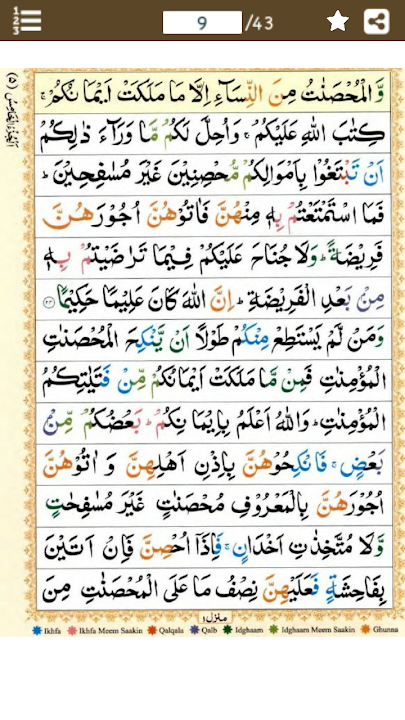 1
2
3
9 /43
الجزء الخامس (۵)
وَّالْمُحْصَنٰتُ مِنَ النِّسَآءِ اِلَّا مَا مَلَكَتْ اَيْمَانُكُمْ ۚ
كِتٰبَ اللّٰهِ عَلَيْكُمْ ۚ وَاُحِلَّ لَكُمْ مَّا وَرَآءَ ذٰلِكُمْ
اَنْ تَبْتَغُوْا بِاَمْوَالِكُمْ مُّحْصِنِيْنَ غَيْرَ مُسٰفِحِيْنَ ؕ
فَمَا اسْتَمْتَعْتُمْ بِهٖ مِنْهُنَّ فَاٰتُوْهُنَّ اُجُوْرَهُنَّ
فَرِيْضَةً ؕ وَلَا جُنَاحَ عَلَيْكُمْ فِيْمَا تَرٰضَيْتُمْ بِهٖ
مِنْۢ بَعْدِ الْفَرِيْضَةِ ؕ اِنَّ اللّٰهَ كَانَ عَلِيْمًا حَكِيْمًا ﴿۲۴﴾
وَمَنْ لَّمْ يَسْتَطِعْ مِنْكُمْ طَوْلًا اَنْ يَّنْكِحَ الْمُحْصَنٰتِ
الْمُؤْمِنٰتِ فَمِنْ مَّا مَلَكَتْ اَيْمَانُكُمْ مِّنْ فَتَيٰتِكُمُ
الْمُؤْمِنٰتِ ؕ وَاللّٰهُ اَعْلَمُ بِاِيْمَانِكُمْ ؕ بَعْضُكُمْ مِّنْۢ
بَعْضٍ ۚ فَانْكِحُوْهُنَّ بِاِذْنِ اَهْلِهِنَّ وَاٰتُوْهُنَّ
اُجُوْرَهُنَّ بِالْمَعْرُوْفِ مُحْصَنٰتٍ غَيْرَ مُسٰفِحٰتٍ
وَّلَا مُتَّخِذٰتِ اَخْدَانٍ ۚ فَاِذَآ اُحْصِنَّ فَاِنْ اَتَيْنَ
بِفَاحِشَةٍ فَعَلَيْهِنَّ نِصْفُ مَا عَلَى الْمُحْصَنٰتِ مِنَ
منزل ۱
Ikhfa Ikhfa Meem Saakin Qalqala Qalb Idghaam Idghaam Meem Saakin Ghunna